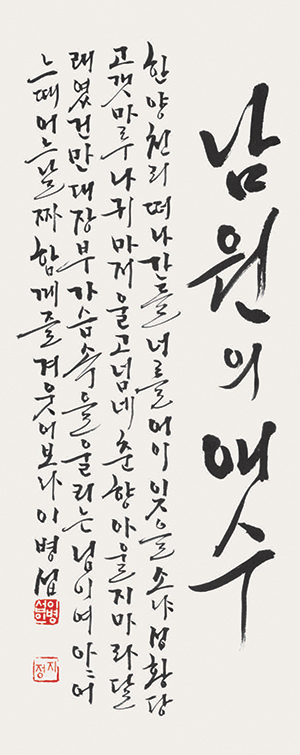 남원의 애수
한양천리 떠나간들 너를 어이 잊을소냐 성황당
고갯마루 나귀마저 울고넘네 춘향아 울지마라 달
래였건만 대장부 가슴속을 울리는 님이여 아~ 어
느때 어느날짜 함께 즐겨 웃어보나 이병섭
이병섭인
지정